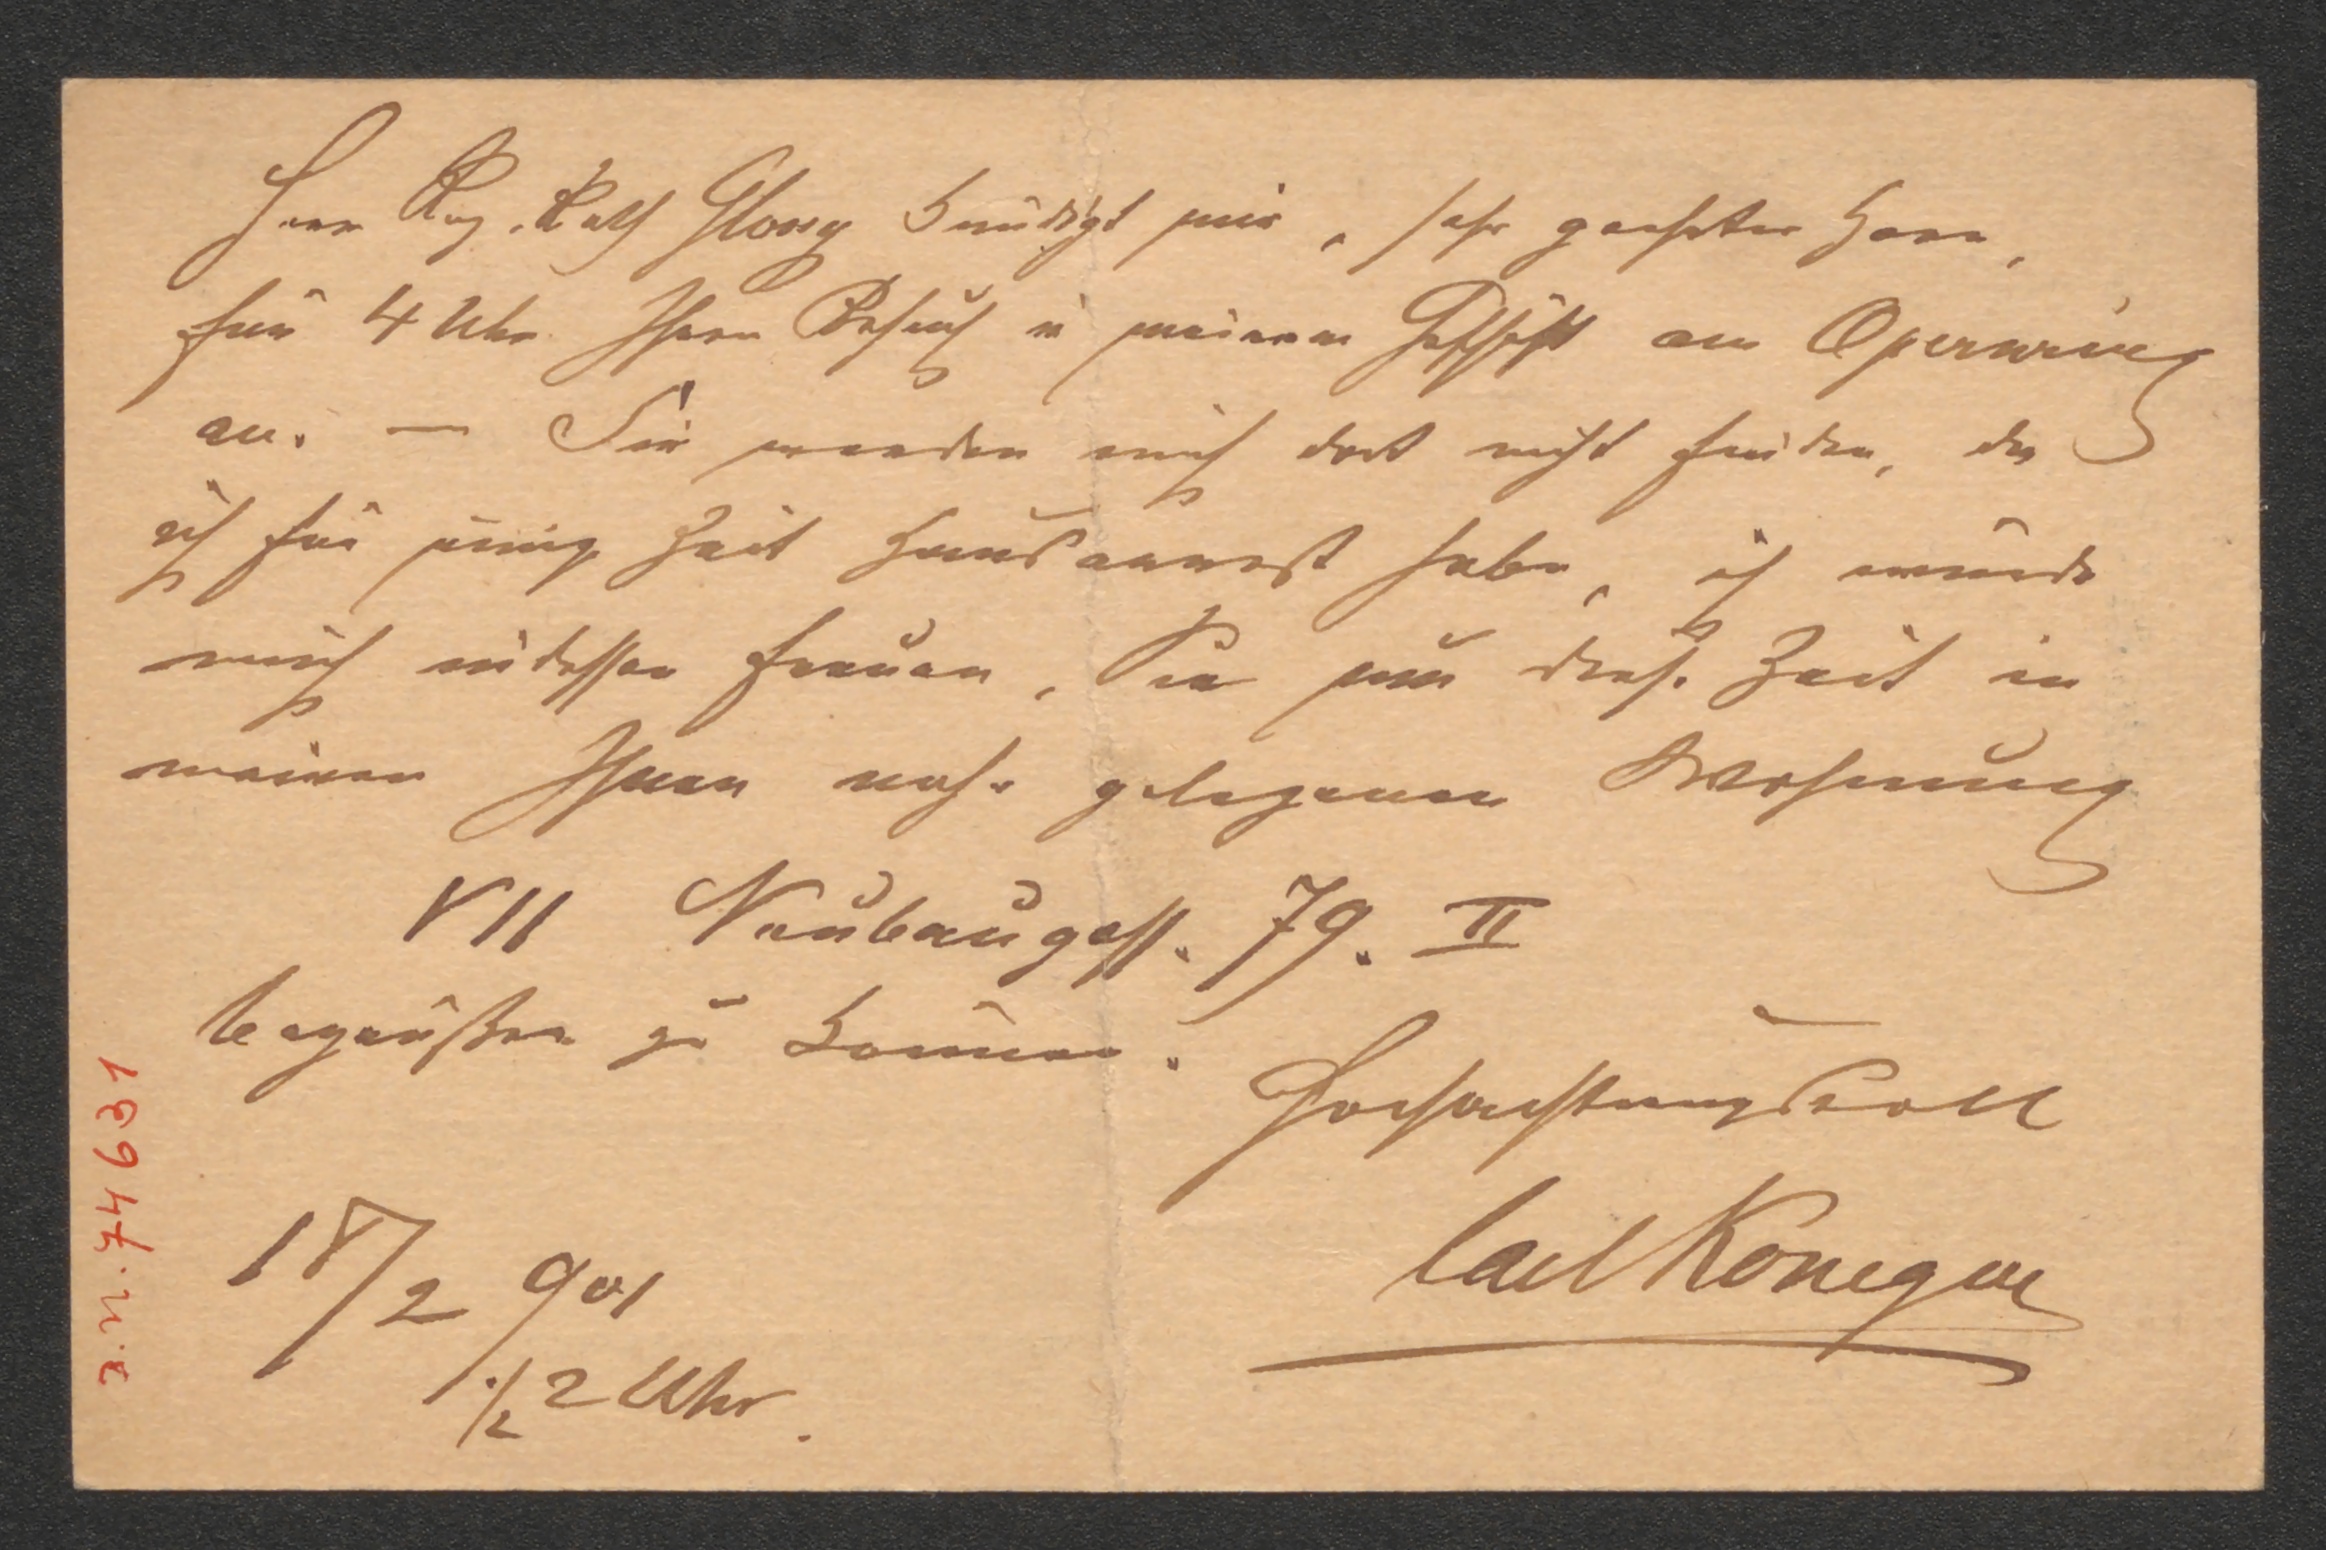 Herr Reg. Rath Glossy kündigt mir, sehr geehrter Herr,
für 4 Uhr Ihren Besuch in meinem Geschäft am Opernring
an. — Sie werden mich dort nicht finden, da
ich für einige Zeit Hausarrest habe, ich würde
mich indessen freuen, Sie um diese Zeit in
meiner Ihnen nahe gelegenen Wohnung
VII Neubaugass. 79. II
begrüßen zu können.
Hochachtungsvoll
Carl Konegen
18/2 901
1/2 2 Uhr.
I.N. 74691